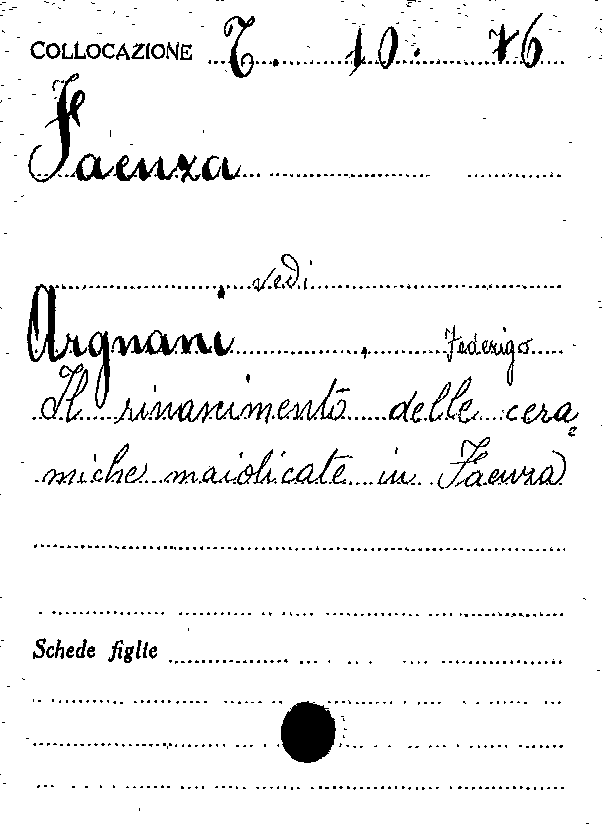 COLLOCAZIONE T. 10. 76
Faenza
vedi
Argnani, Federigo
Il rinascimento delle cera=
miche maiolicate in Faenza
Schede figlie